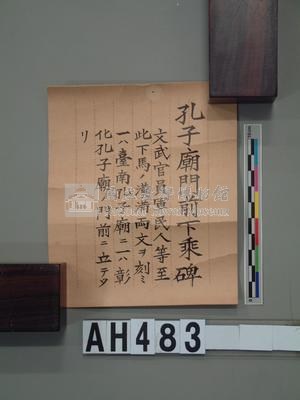 孔子廟門前下乘碑
文武官員軍民人等至
此下馬ノ漢満両文ヲ刻ミ
一ハ臺南孔子廟ニ一ハ彰
化孔子廟ノ門前ニ立テタ
リ
AH483